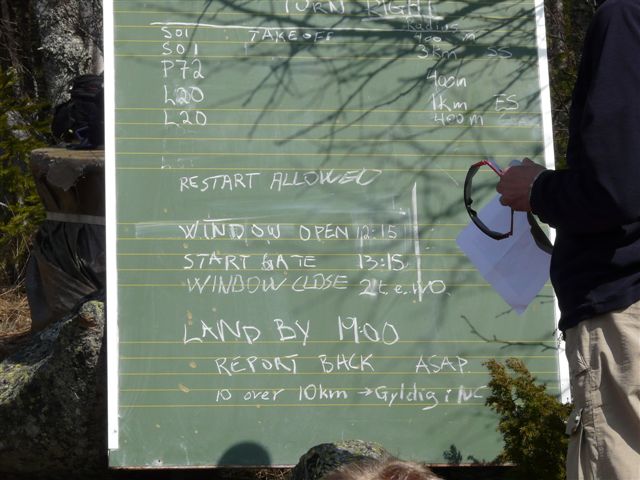 TURN RIGHT
Radius
S01 TAKEOFF 400 m
S01 3km SS
P72 400m
L20 1km ES
L20 400m
RESTART ALLOWED
WINDOW OPEN 12:15
START GATE 13:15
WINDOW CLOSE
LAND BY 19:00
REPORT BACK ASAP.
10 over 10km → Gyldig i NC